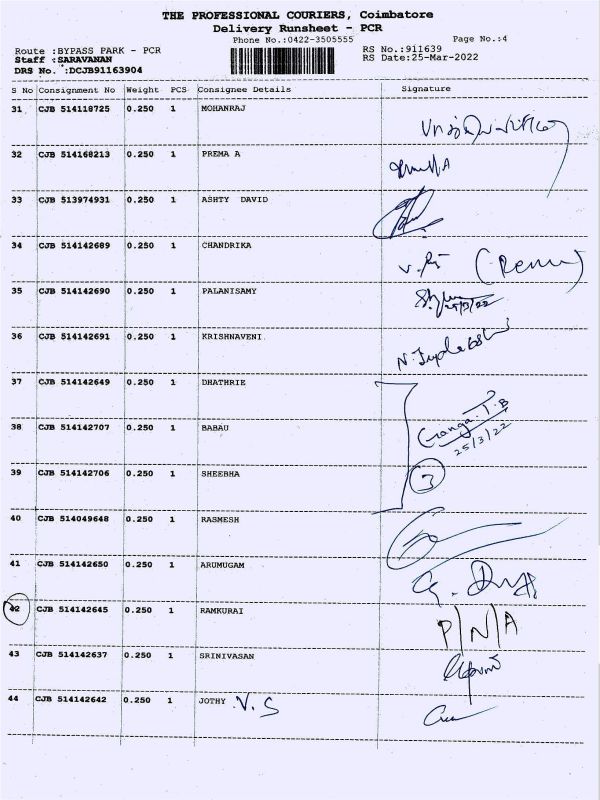 THE PROFESSIONAL COURIERS, Coimbatore
Delivery Runsheet - PCR
Phone No.:0422-3505555 Page No.:4
Route :BYPASS PARK - PCR RS No.:911639
Staff :SARAVANAN RS Date:25-Mar-2022
DRS No. :DCJB91163904
S No Consignment No Weight PCS Consignee Details Signature
31 CJB 514118725 0.250 1 MOHANRAJ
32 CJB 514168213 0.250 1 PREMA A
33 CJB 513974931 0.250 1 ASHTY DAVID
34 CJB 514142689 0.250 1 CHANDRIKA (Renu)
35 CJB 514142690 0.250 1 PALANISAMY 25/3/22
36 CJB 514142691 0.250 1 KRISHNAVENI
37 CJB 514142649 0.250 1 DHATHRIE
38 CJB 514142707 0.250 1 BABAU Ganga.T.B
25/3/22
39 CJB 514142706 0.250 1 SHEEBHA 3
40 CJB 514049648 0.250 1 RASMESH
41 CJB 514142650 0.250 1 ARUMUGAM
42 CJB 514142645 0.250 1 RAMKURAI P/N/A
43 CJB 514142637 0.250 1 SRINIVASAN
44 CJB 514142642 0.250 1 JOTHY .V.S